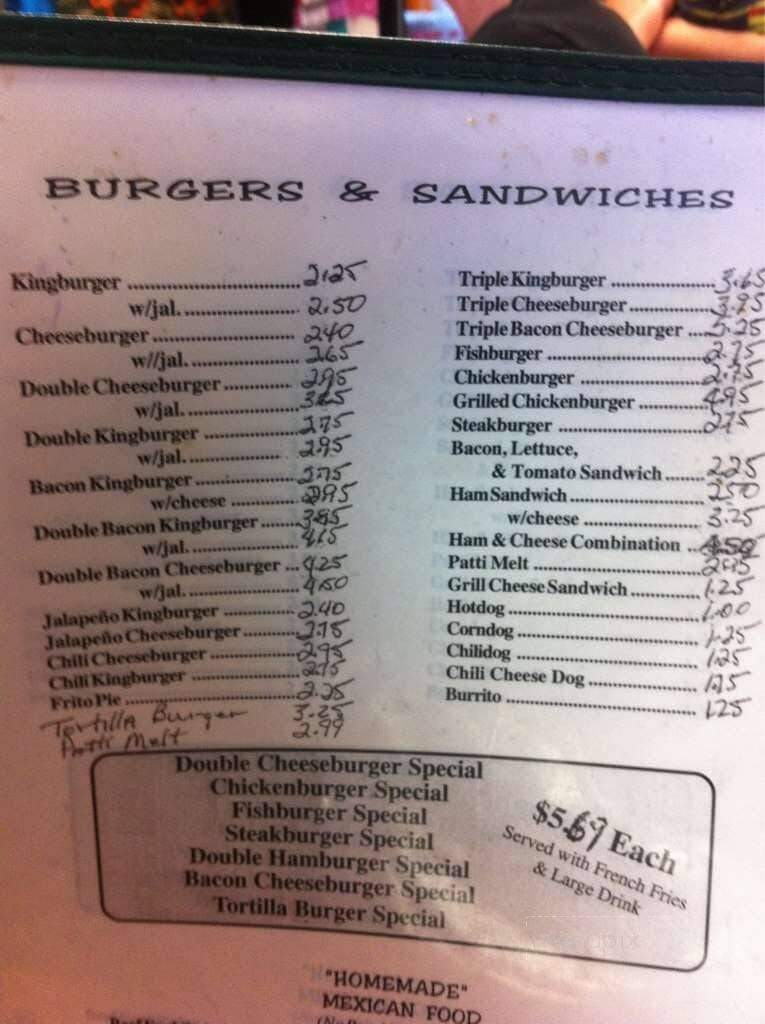 BURGERS & SANDWICHES
Kingburger 2.25
w/jal. 2.50
Cheeseburger 2.40
w//jal. 2.65
Double Cheeseburger 2.95
w/jal.
Double Kingburger 2.75
w/jal. 2.95
Bacon Kingburger 2.75
w/cheese 2.95
Double Bacon Kingburger 3.85
w/jal. 4.15
Double Bacon Cheeseburger 4.25
w/jal. 4.50
Jalapeño Kingburger 2.40
Jalapeño Cheeseburger 2.75
Chili Cheeseburger 2.95
Chili Kingburger 2.75
Frito Pie 2.25
Tortilla Burger 3.25
Patti Melt 2.99
Triple Kingburger 3.65
Triple Cheeseburger 3.95
Triple Bacon Cheeseburger 5.25
Fishburger 2.75
Chickenburger 2.75
Grilled Chickenburger 4.95
Steakburger 2.75
Bacon, Lettuce,
& Tomato Sandwich 2.25
Ham Sandwich 2.50
w/cheese 3.25
Ham & Cheese Combination 4.50
Patti Melt
Grill Cheese Sandwich 1.25
Hotdog 1.00
Corndog 1.25
Chilidog 1.25
Chili Cheese Dog 1.75
Burrito 1.25
Double Cheeseburger Special
Chickenburger Special
Fishburger Special
Steakburger Special
Double Hamburger Special
Bacon Cheeseburger Special
Tortilla Burger Special
$5.69 Each
Served with French Fries
& Large Drink
"HOMEMADE"
MEXICAN FOOD